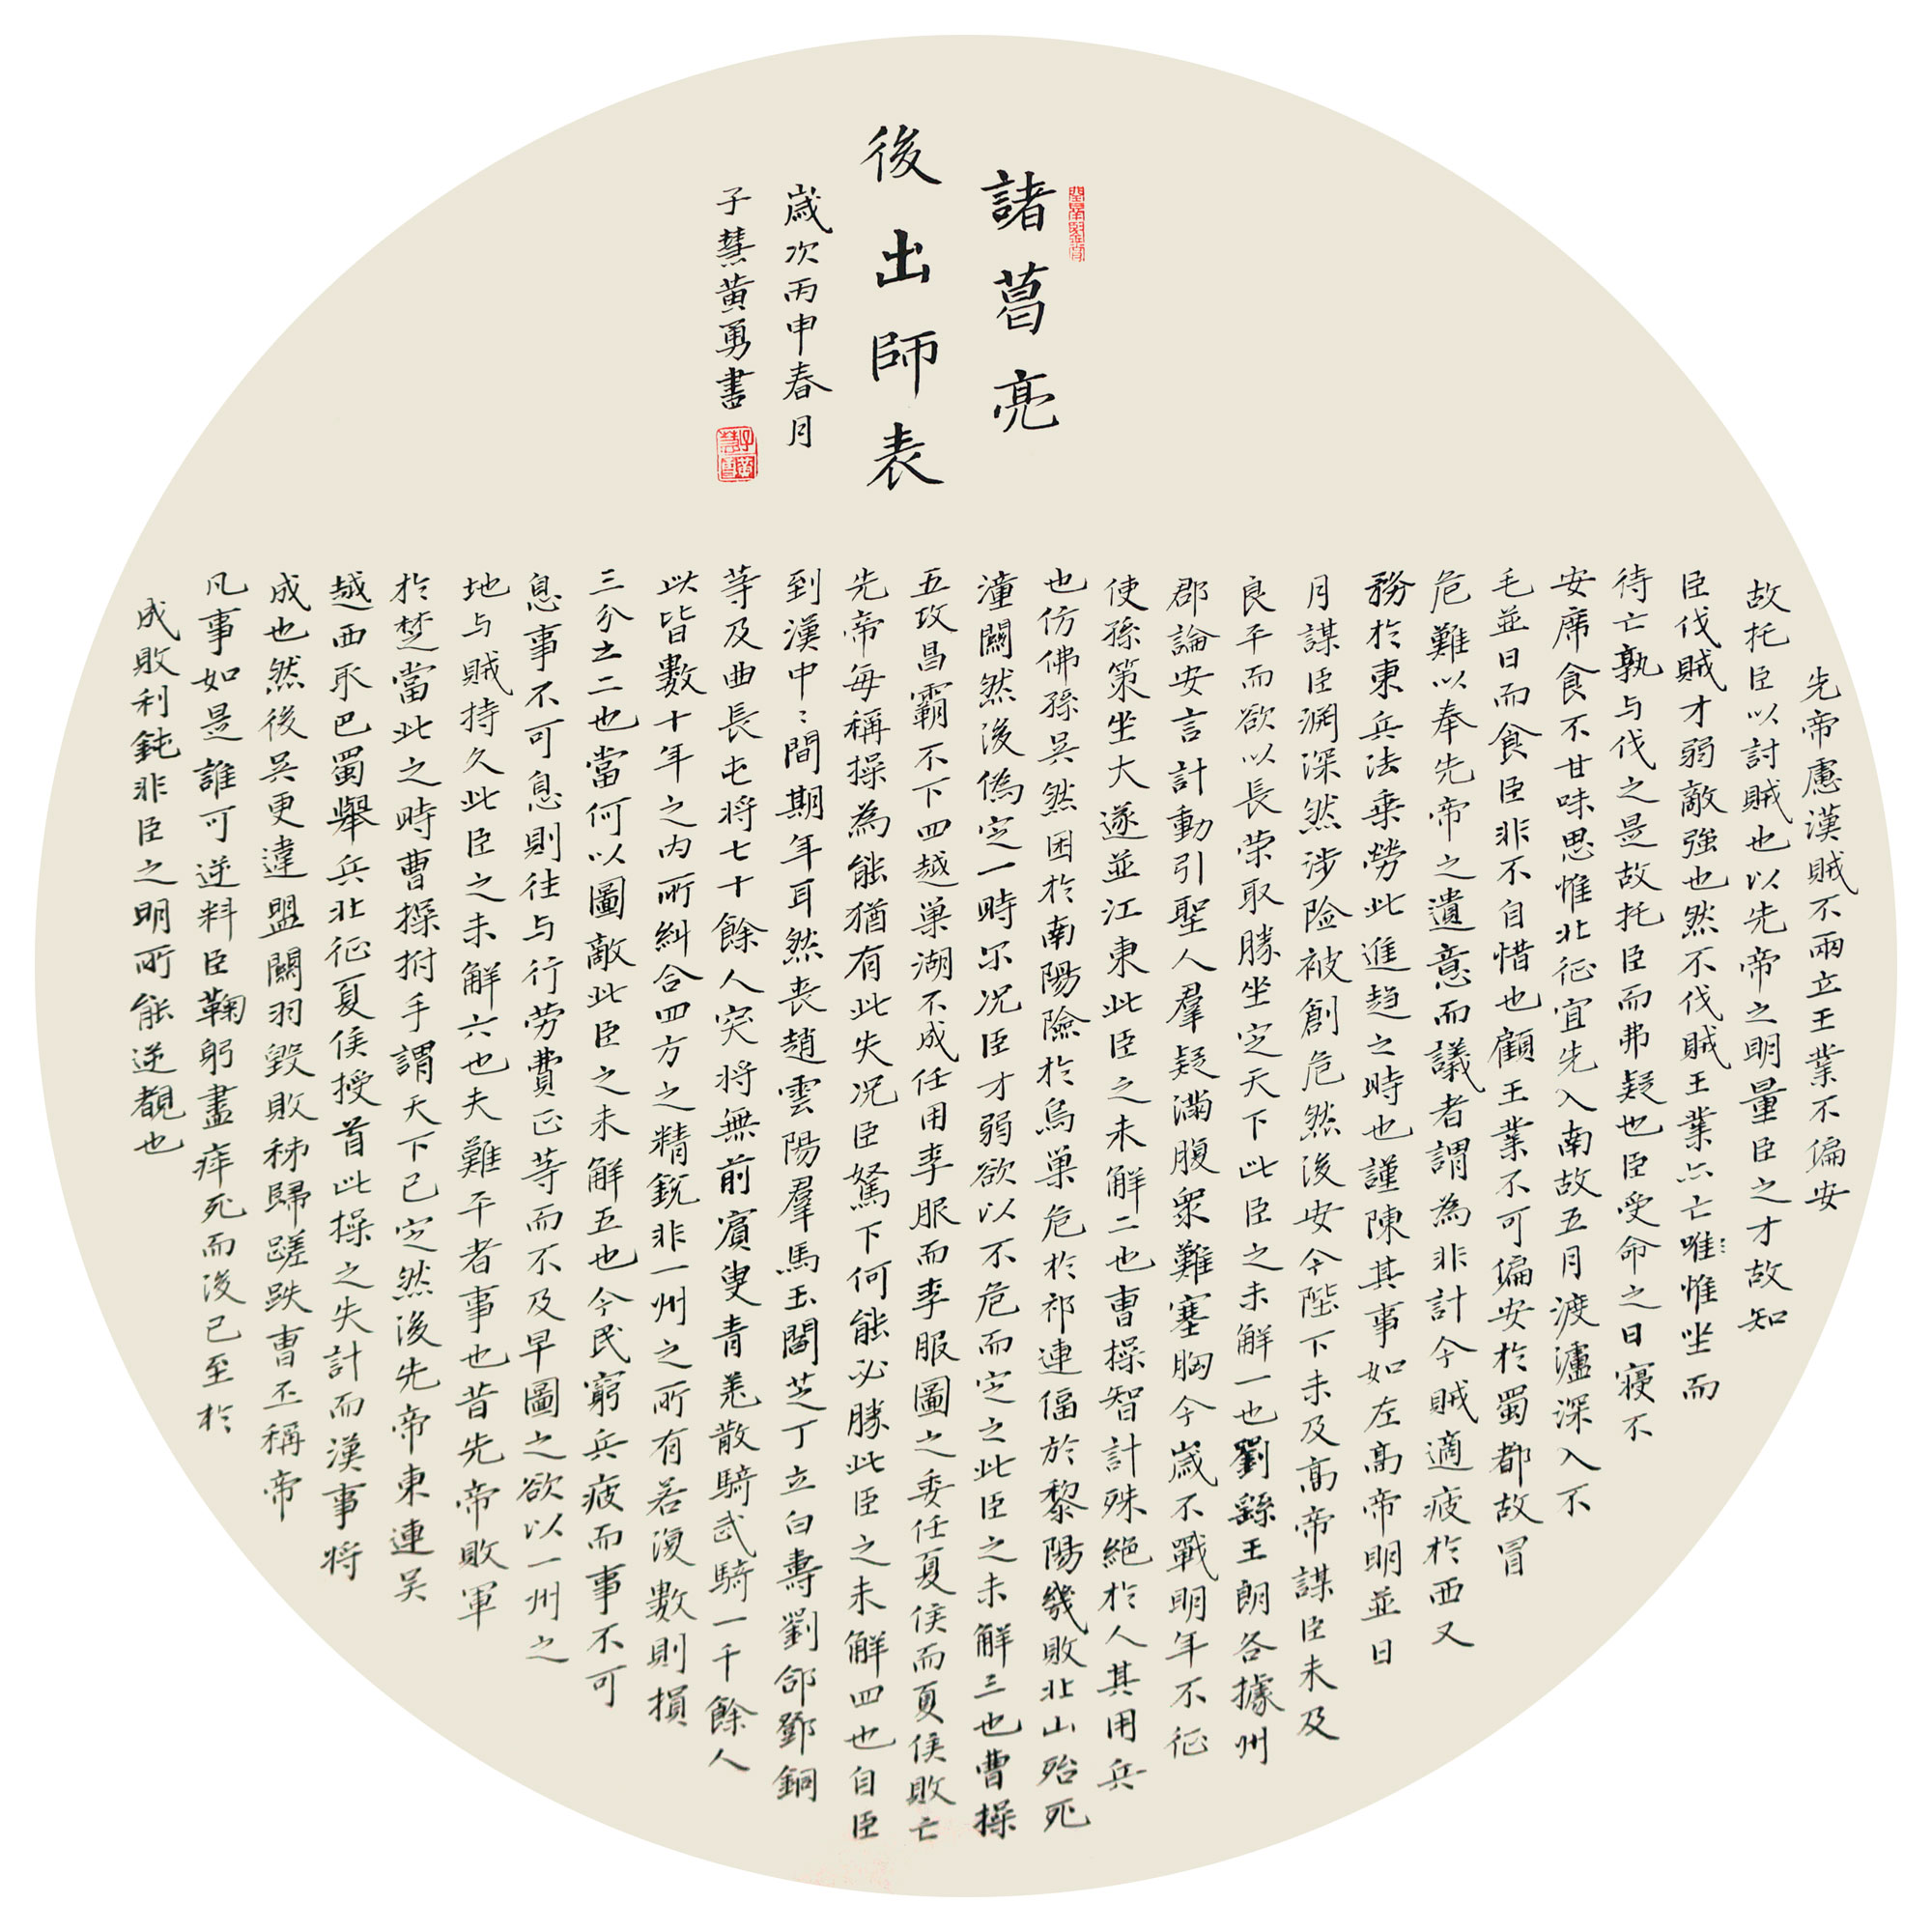 諸葛亮
後出師表
歲次丙申春月
子慧黄勇書
先帝慮漢賊不兩立王業不偏安
故托臣以討賊也以先帝之明量臣之才故知
臣伐賊才弱敵強也然不伐賊王業亦亡唯惟坐而
待亡孰与伐之是故托臣而弗疑也臣受命之日寝不
安席食不甘味思惟北征宜先入南故五月渡瀘深入不
毛並日而食臣非不自惜也顧王業不可偏安於蜀都故冒
危難以奉先帝之遺意而議者謂為非計今賊適疲於西又
務於東兵法乗勞此進趋之時也謹陳其事如左高帝明並日
月謀臣渊深然涉险被創危然後安今陛下未及高帝謀臣未及
良平而欲以長荣取勝坐定天下此臣之未解一也劉繇王朗各據州
郡論安言計動引聖人羣疑滿腹衆難塞胸今歲不戰明年不征
使孫策坐大遂並江東此臣之未解二也曹操智計殊絕於人其用兵
也仿佛孫吴然困於南陽險於烏巢危於祁連偪於黎陽幾敗北山殆死
潼關然後僞定一時尔况臣才弱欲以不危而定之此臣之未解三也曹操
五攻昌霸不下四越巢湖不成任用李服而李服圖之委任夏侯而夏侯敗亡
先帝每稱操為能猶有此失况臣駑下何能必勝此臣之未解四也自臣
到漢中：間期年耳然丧趙雲陽羣馬玉閻芝丁立白壽劉郃鄧銅
等及曲長屯将七十餘人突将無前賨叟青羌散騎武騎一千餘人
此皆數十年之内所糾合四方之精鋭非一州之所有若復數則損
三分之二也當何以圖敵此臣之未解五也今民窮兵疲而事不可
息事不可息則往与行劳費正等而不及早圖之欲以一州之
地与賊持久此臣之未解六也夫難平者事也昔先帝敗軍
於楚當此之時曹操拊手謂天下已定然後先帝東連吴
越西取巴蜀舉兵北征夏侯授首此操之失計而漢事将
成也然後吴更違盟關羽毀敗秭歸蹉跌曹丕稱帝
凡事如是誰可逆料臣鞠躬盡瘁死而後已至於
成敗利鈍非臣之明所能逆覩也